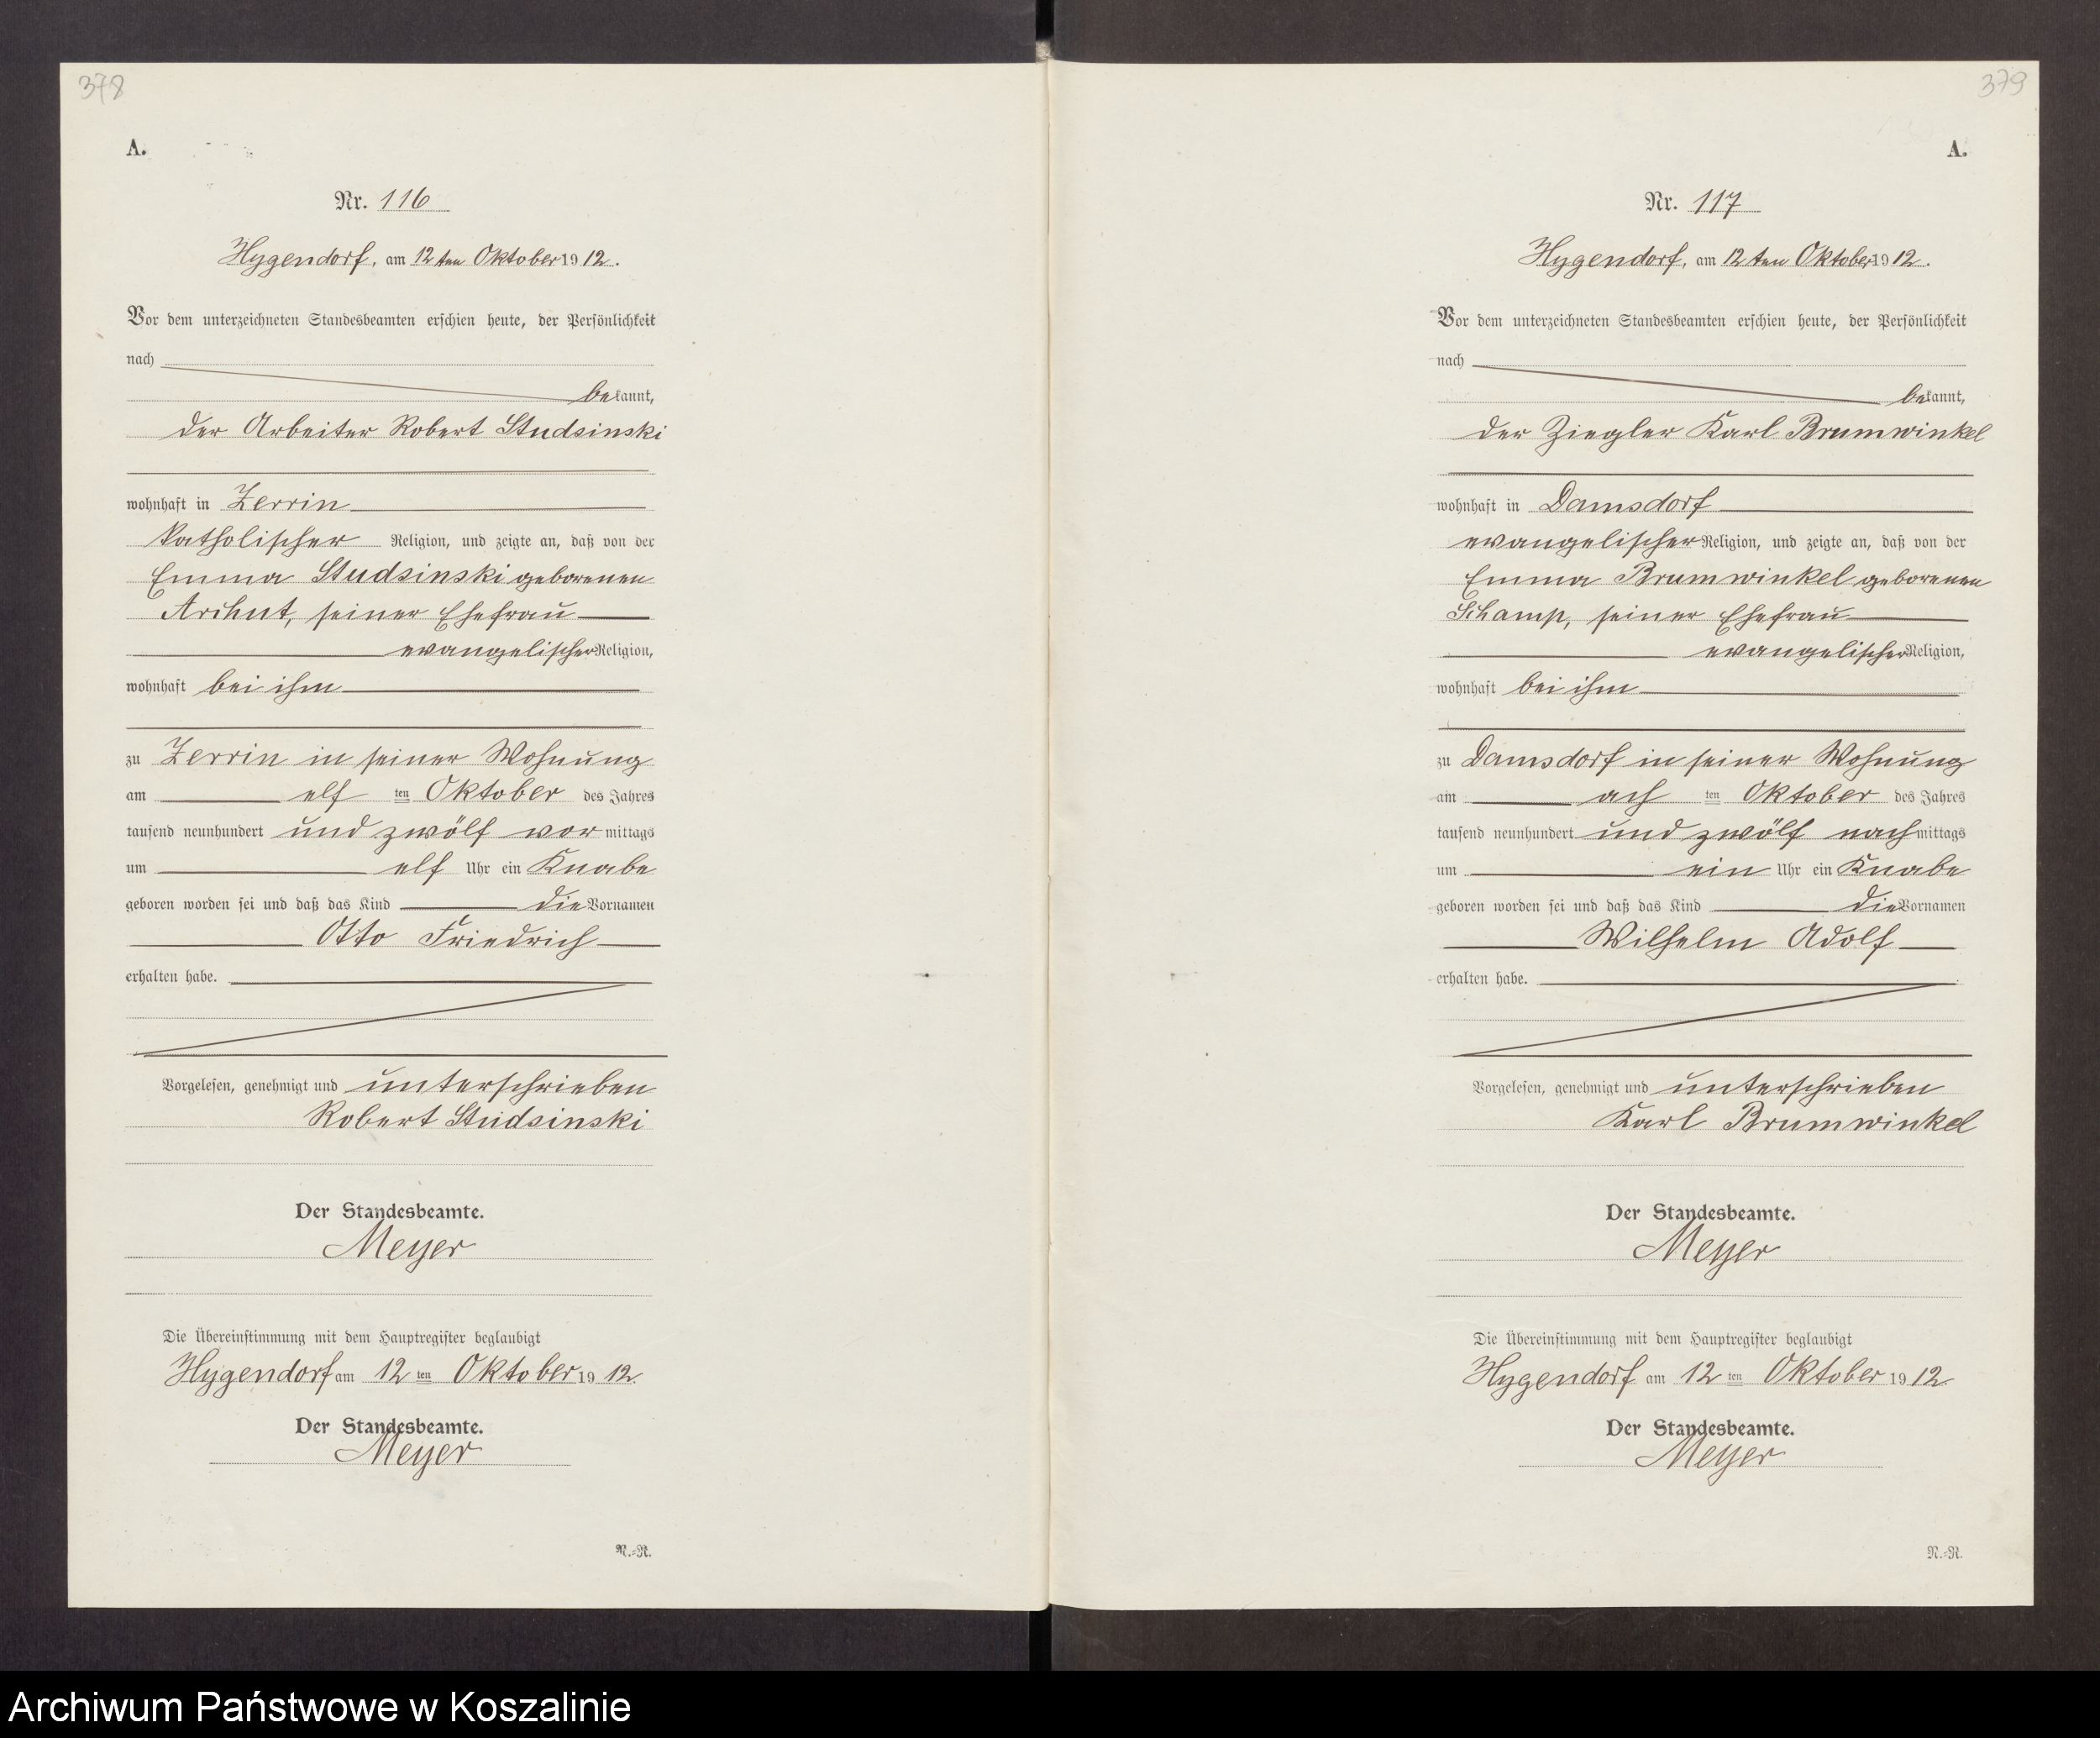 378
A.
Nr. 116
Hygendorf, am 12ten Oktober 1912.
Vor dem unterzeichneten Standesbeamten erschien heute, der Persönlichkeit
nach
bekannt,
der Arbeiter Robert Studsinski
wohnhaft in Zerrin
katholischer Religion, und zeigte an, daß von der
Emma Studsinski geborenen
Archut, seiner Ehefrau
evangelischer Religion,
wohnhaft bei ihm
zu Zerrin in seiner Wohnung
am elf ten Oktober des Jahres
tausend neunhundert und zwölf vor mittags
um elf Uhr ein Knabe
geboren worden sei und daß das Kind die Vornamen
Otto Friedrich
erhalten habe.
Vorgelesen, genehmigt und unterschrieben
Robert Studsinski
Der Standesbeamte.
Meyer
Die Übereinstimmung mit dem Hauptregister beglaubigt
Hygendorf am 12 ten Oktober 19 12.
Der Standesbeamte.
Meyer
N.-R.
379
A.
Nr. 117
Hygendorf, am 12ten Oktober 1912.
Vor dem unterzeichneten Standesbeamten erschien heute, der Persönlichkeit
nach
bekannt,
der Ziegler Karl Brumwinkel
wohnhaft in Damsdorf
evangelischer Religion, und zeigte an, daß von der
Emma Brumwinkel geborenen
Schamp, seiner Ehefrau
evangelischer Religion,
wohnhaft bei ihm
zu Damsdorf in seiner Wohnung
am ach ten Oktober des Jahres
tausend neunhundert und zwölf nach mittags
um ein Uhr ein Knabe
geboren worden sei und daß das Kind die Vornamen
Wilhelm Adolf
erhalten habe.
Vorgelesen, genehmigt und unterschrieben
Karl Brumwinkel
Der Standesbeamte.
Meyer
Die Übereinstimmung mit dem Hauptregister beglaubigt
Hygendorf am 12 ten Oktober 19 12.
Der Standesbeamte.
Meyer
N.-R.
Archiwum Państwowe w Koszalinie